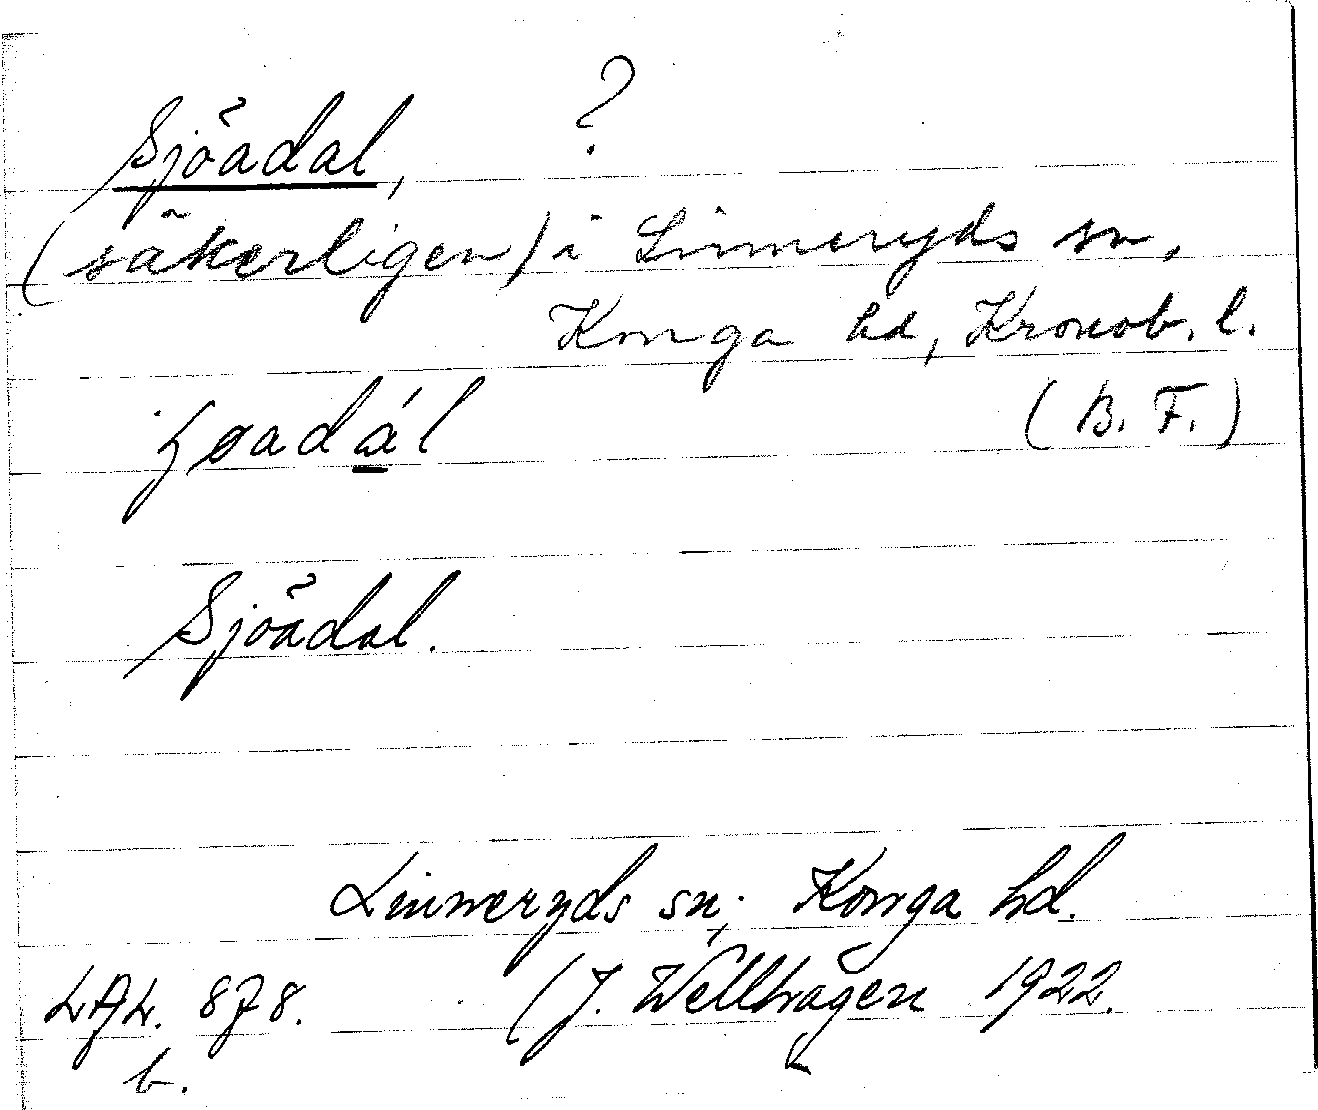 Sjöadal, ?
(säkerligen) i Linneryds sn,
Konga hd, Kronob. l.
(B. F.)
Sjöadal.
Linneryds sn; Konga hd.
LAL. 878. (J. Wellhagen 1922.
b.